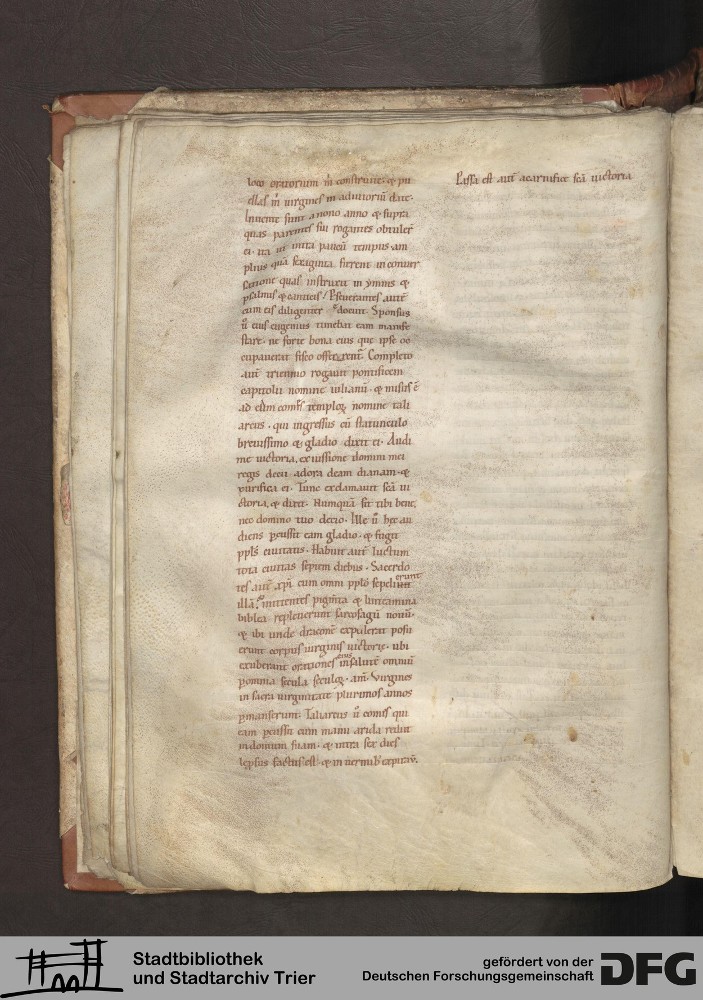 loco oratorium m̄ construite · & pu
ellas m̄ uirgines in adiutoriū date ·
Inuente sunt a nono anno & supra
quas parentes sui rogantes obtuler̄
ei · ita ut intra paucū tempus am
plius quā sexaginta fuerent in conuer
satione quas instruxit in ymnis &
psalmis & canticis / Pseuerantes autē
cum eis diligenter edocuit · Sponsus
ū eius eugenius timebat eam manife
stare · ne forte bona eius que ipse oc
cupauerat fisco offerrent̄ · Completo
aut̄ triennio rogauit pontificem
capitolii nomine iulianū · & misit ē
ad eū comes temploꝝ nomine tali
arcus · qui ingressus cū statunculo
breuissimo & gladio dixit ei · Audi
me uictoria, ex iussione domini mei
regis decii adora deam dianam · &
purifica ei · Tunc exclamauit scā ui
ctoria, & dixit · Numquā sit tibi bene,
nec domino tuo decio · Ille ū hęc au
diens pcussit eam gladio · & fugit
ppl's ciuitatis · Habuit aut̄ luctum
tota ciuitas septem diebus · Sacerdo
tes aut̄ xp̄i cum omni pplo sepelierunt
illā, mittentes pigmta & linteamina
biblea repleuerunt sarcofagū nouū ·
& ibi unde draconē expulerat posu
erunt corpus uirginis uictorie · ubi
exuberant orationes eius in salutē omniū
p omnia secula seculoꝝ · am̄ · Virgines
in sacra uirginitate plurimos annos
pmanserunt · Taliarcus ū comes qui
eam pcussit cum manu arida rediit
in domum suam · & intra sex dies
lepsus factus est · & in uermib' expirauit.
Passa est aut̄ a carnifice scā uictoria
Stadtbibliothek
und Stadtarchiv Trier
gefördert von der
Deutschen Forschungsgemeinschaft
DFG